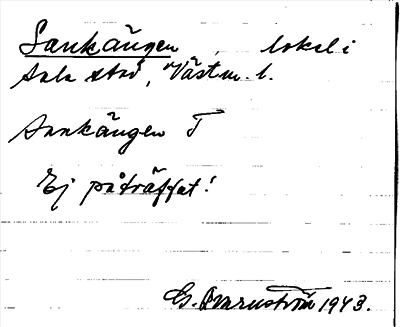 Sankängen, lokal i
Sala stad, Västm. l.
Sankängen T
Ej påträffat!
G. Ovarnström 1943.